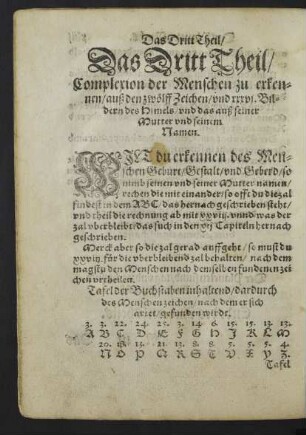 Das Dritt Theil/
Das Dritt Theil/
Complexion der Menschen zu erken-
nen/ auß den zwölff Zeichen/ vnd xxxvj. Bil-
dern des Himels/ vnd das auß seiner
Mutter vnd seinem
Namen.
WIltu erkennen des Men-
schen Geburt/ Gestalt/ vnd Geberd/ so
nimb seinen vnd seiner Mutter namen/
rechen die mit einander/ so offt du die zal
findest in dem ABC. das hernach geschrieben steht/
vnd theil die rechnung ab mit xxviij. vnnd was der
zal vberbleibt/ das such in den xij Capiteln hernach
geschrieben.
Merck aber so die zal gerad auffgeht/ so must du
xxviij. für die vberbleibend zal behalten/ nach dem
magstu den Menschen nach demselben fundenen zei-
chen vrtheilen.
Tafel der Buchstaben inhaltend/ dardurch
des Menschen zeichen/ nach dem er sich
artet/ gefunden wirdt.
3. 3. 22. 24. 25. 3. 14. 6. 15. 15. 13. 13.
A B C D E F G H J K L M
20. 18. 13. 21. 13. 8. 8. 5. 5. 4. 4.
N O P Q R S T V X Y Z.
Tafel